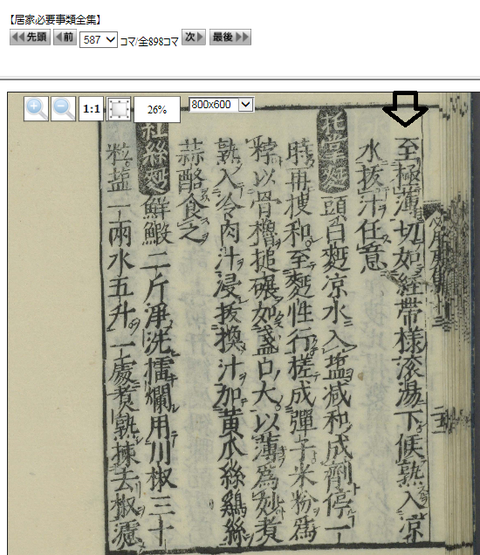 【居家必要事類全集】
先頭 前 587 コマ/全898コマ 次 最後
1:1 26% 800x600
至極薄切如經帶樣滚湯下候熟入凉
水抜汁任意
托掌麪 頭白麪凉水入塩减和成劑停一
時再搜和至麪性行搓成彈子米粉爲
以骨櫓搥碾如盞口大以薄爲妙煮
熟入冷肉汁浸抜換汁加黄瓜絲鷄絲
蒜酪食之
紅絲麪 鮮鰕二斤淨洗擂爛用川椒三十
粒塩一兩水五升一處煮熟揀去椒濾